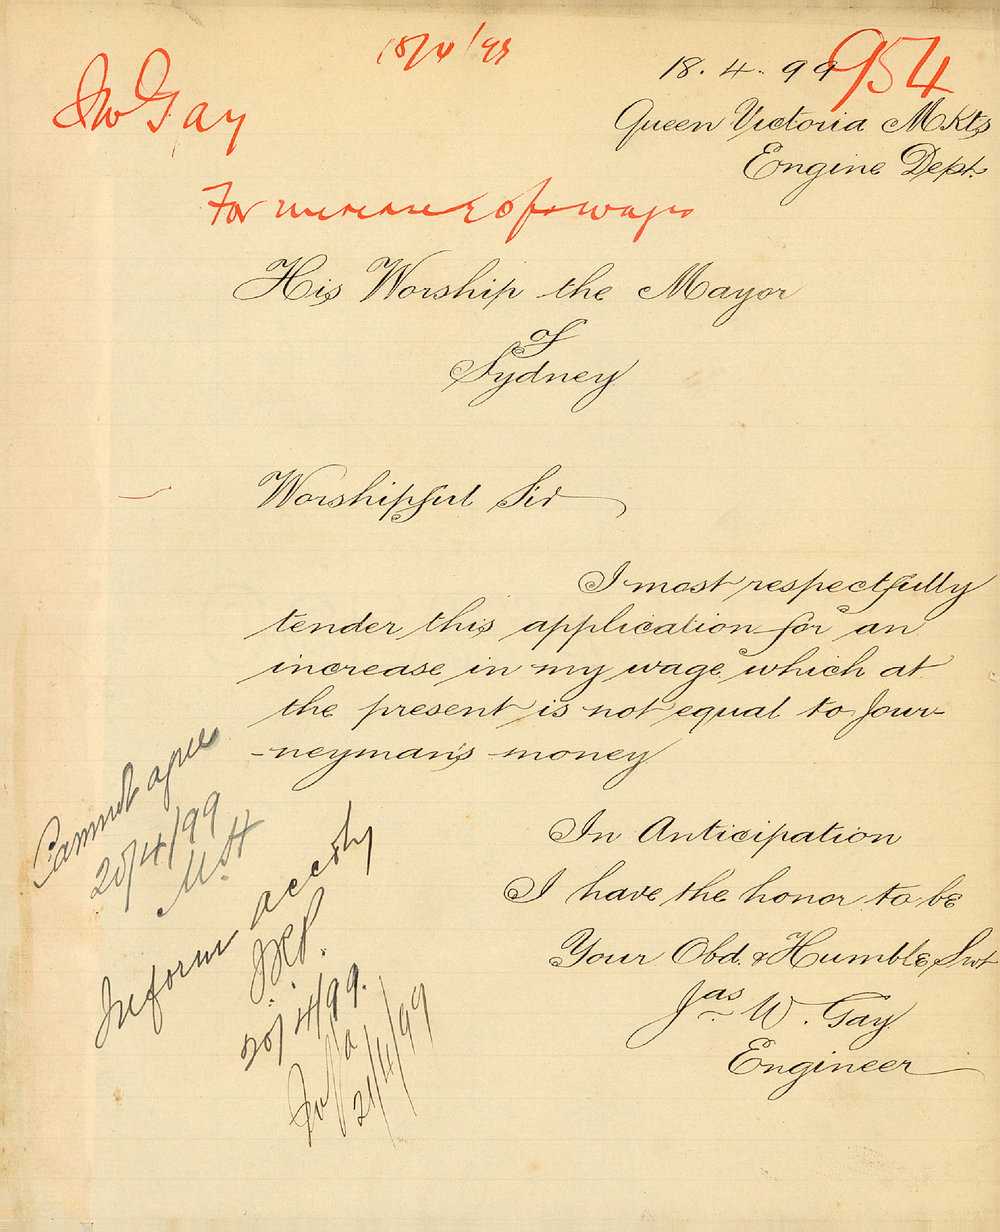 18/4/99
18. 4. 99
954
JW Gay
Queen Victoria Mkts
Engine Dept.
For increase of wages
His Worship the Mayor
of
Sydney
Worshipful Sir
I most respectfully
tender this application for an
increase in my wage which at
the present is not equal to Jour-
-neyman's money
In Anticipation
I have the honor to be
Your Obd. & Humble Svt
Jas W. Gay
Engineer
Cannot agree
20/4/99
Inform accdly
20/4/99.
21/4/99